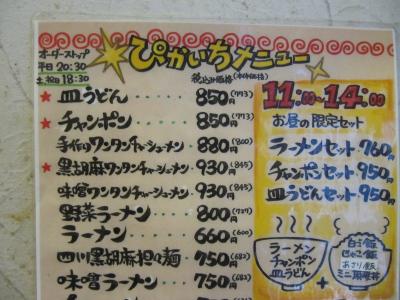 オーダーストップ
平日 20:30
土・祝 18:30
ぴかいちメニュー
税込み価格(本体価格)
★ 皿うどん・・・・850円(773)
★ チャンポン・・・850円(773)
手作りワンタンチャーシューメン・880円(800)
★ 黒胡麻ワンタンチャーシューメン・930円(845)
味噌ワンタンチャーシューメン・930円(845)
野菜ラーメン・・・800円(727)
ラーメン・・・・660円(600)
四川黒胡麻担々麺・750円(682)
味噌ラーメン・・・750円(682)
11:00~14:00
お昼の限定セット
ラーメンセット 760円
チャンポンセット 950円
皿うどんセット 950円
ラーメン
チャンポン
皿うどん
+
白ご飯
じゃこ飯
あさり飯